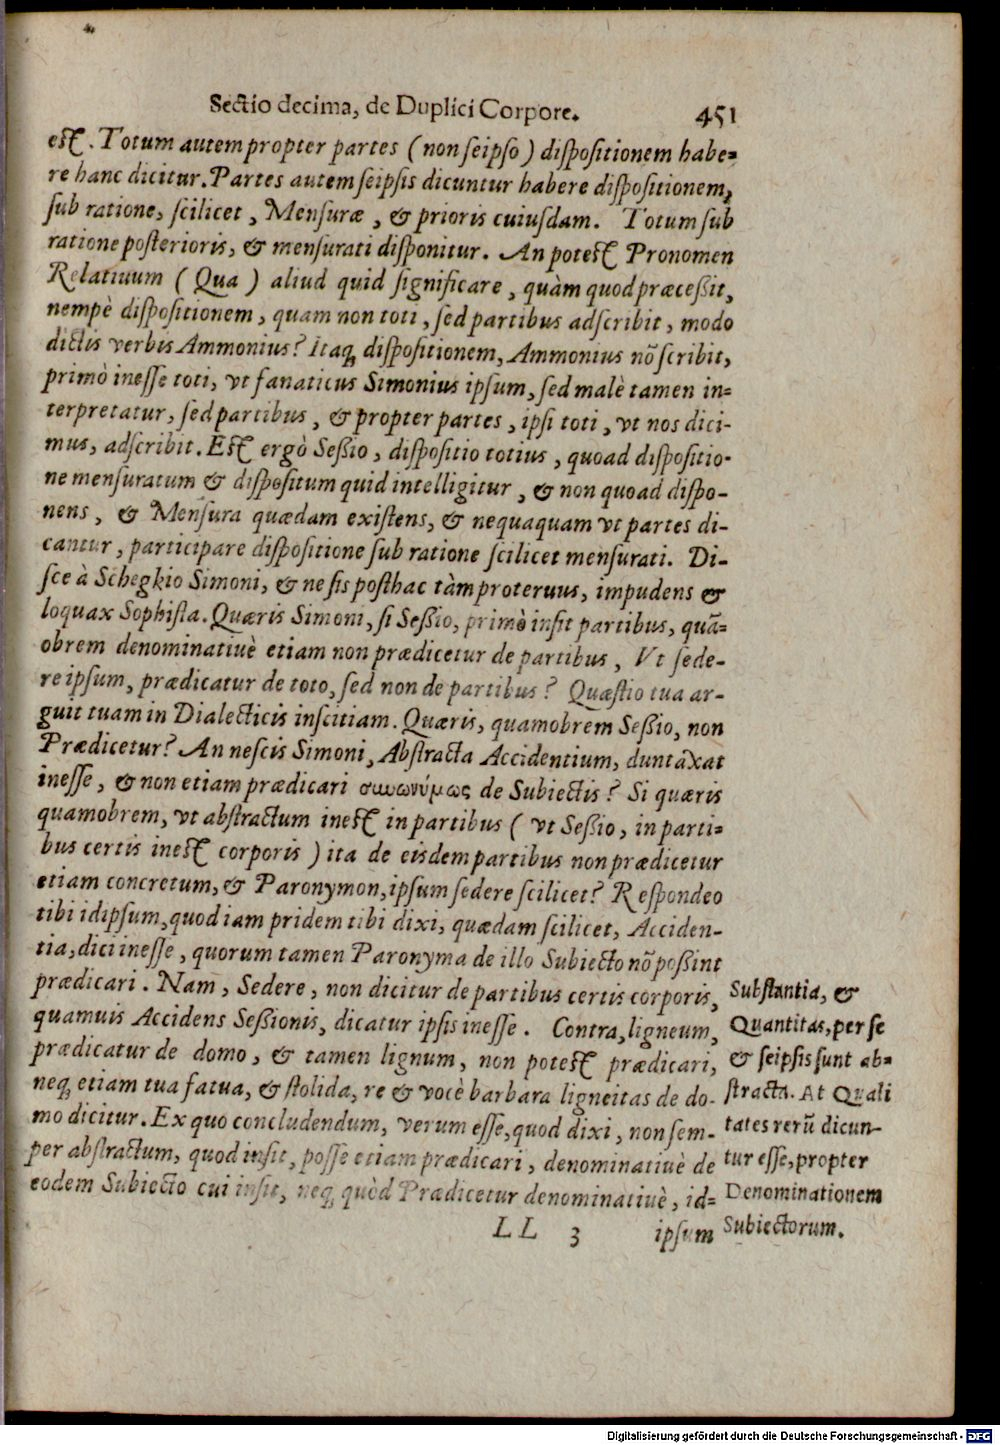 Sectio decima, de Duplici Corpore. 451
est. Totum autem propter partes (non seipso) dispositionem habe=
re hanc dicitur. Partes autem seipsis dicuntur habere dispositionem,
sub ratione, scilicet, Mensuræ, & prioris cuiusdam. Totum sub
ratione posterioris, & mensurati disponitur. An potest Pronomen
Relatiuum (Qua) aliud quid significare, quàm quod præceßit,
nempè dispositionem, quam non toti, sed partibus adscribit, modo
dictis verbis Ammonius? Itaq; dispositionem, Ammonius nõ scribit,
primò inesse toti, vt fanaticus Simonius ipsum, sed malè tamen in=
terpretatur, sed partibus, & propter partes, ipsi toti, vt nos dici-
mus, adscribit. Est ergò Seßio, dispositio totius, quoad dispositio-
ne mensuratum & dispositum quid intelligitur, & non quoad dispo-
nens, & Mensura quædam existens, & nequaquam vt partes di-
cantur, participare dispositione sub ratione scilicet mensurati. Di-
sce à Schegkio Simoni, & ne sis posthac tàm proteruus, impudens &
loquax Sophista. Quæris Simoni, si Seßio, primò insit partibus, quã=
obrem denominatiuè etiam non prædicetur de partibus, Vt sede-
re ipsum, prædicatur de toto, sed non de partibus? Quæstio tua ar-
guit tuam in Dialecticis inscitiam. Quæris, quamobrem Seßio, non
Prædicetur? An nescis Simoni, Abstracta Accidentium, duntàxat
inesse, & non etiam prædicari συνωνύμως de Subiectis? Si quæris
quamobrem, vt abstractum inest in partibus (vt Seßio, in parti=
bus certis inest corporis) ita de eisdem partibus non prædicetur
etiam concretum, & Paronymon, ipsum sedere scilicet? Respondeo
tibi idipsum, quod iam pridem tibi dixi, quædam scilicet, Acciden-
tia, dici inesse, quorum tamen Paronyma de illo Subiecto nõ poßint
prædicari. Nam, Sedere, non dicitur de partibus certis corporis,
quamuis Accidens Seßionis, dicatur ipsis inesse. Contra, ligneum,
prædicatur de domo, & tamen lignum, non potest prædicari,
neq; etiam tua fatua, & stolida, re & vocè barbara ligneitas de do-
mo dicitur. Ex quo concludendum, verum esse, quod dixi, non sem-
per abstractum, quod insit, posse etiam prædicari, denominatiuè de
eodem Subiecto cui insit, neq; quòd Prædicetur denominatiuè, id=
LL 3 ipsum
Substantia, &
Quantitas, per se
& seipsis sunt ab=
stracta. At Quali
tates rerũ dicun-
tur esse, propter
Denominationem
Subiectorum.
Digitalisierung gefördert durch die Deutsche Forschungsgemeinschaft - DFG